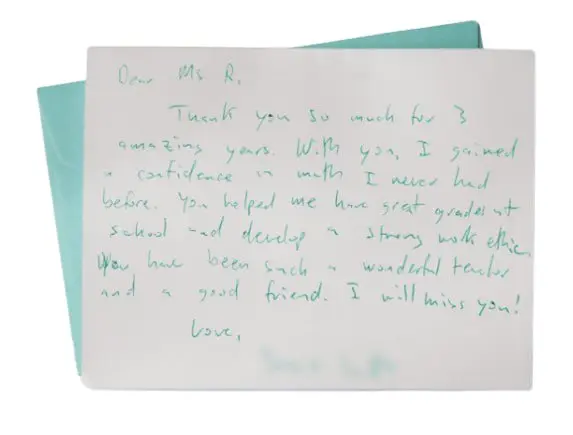 Dear Ms R,
Thank you so much for 3
amazing years. With you, I gained
a confidence in math I never had
before. You helped me have great grades at
school and develop a strong work ethic.
You have been such a wonderful teacher
and a good friend. I will miss you!
Love,